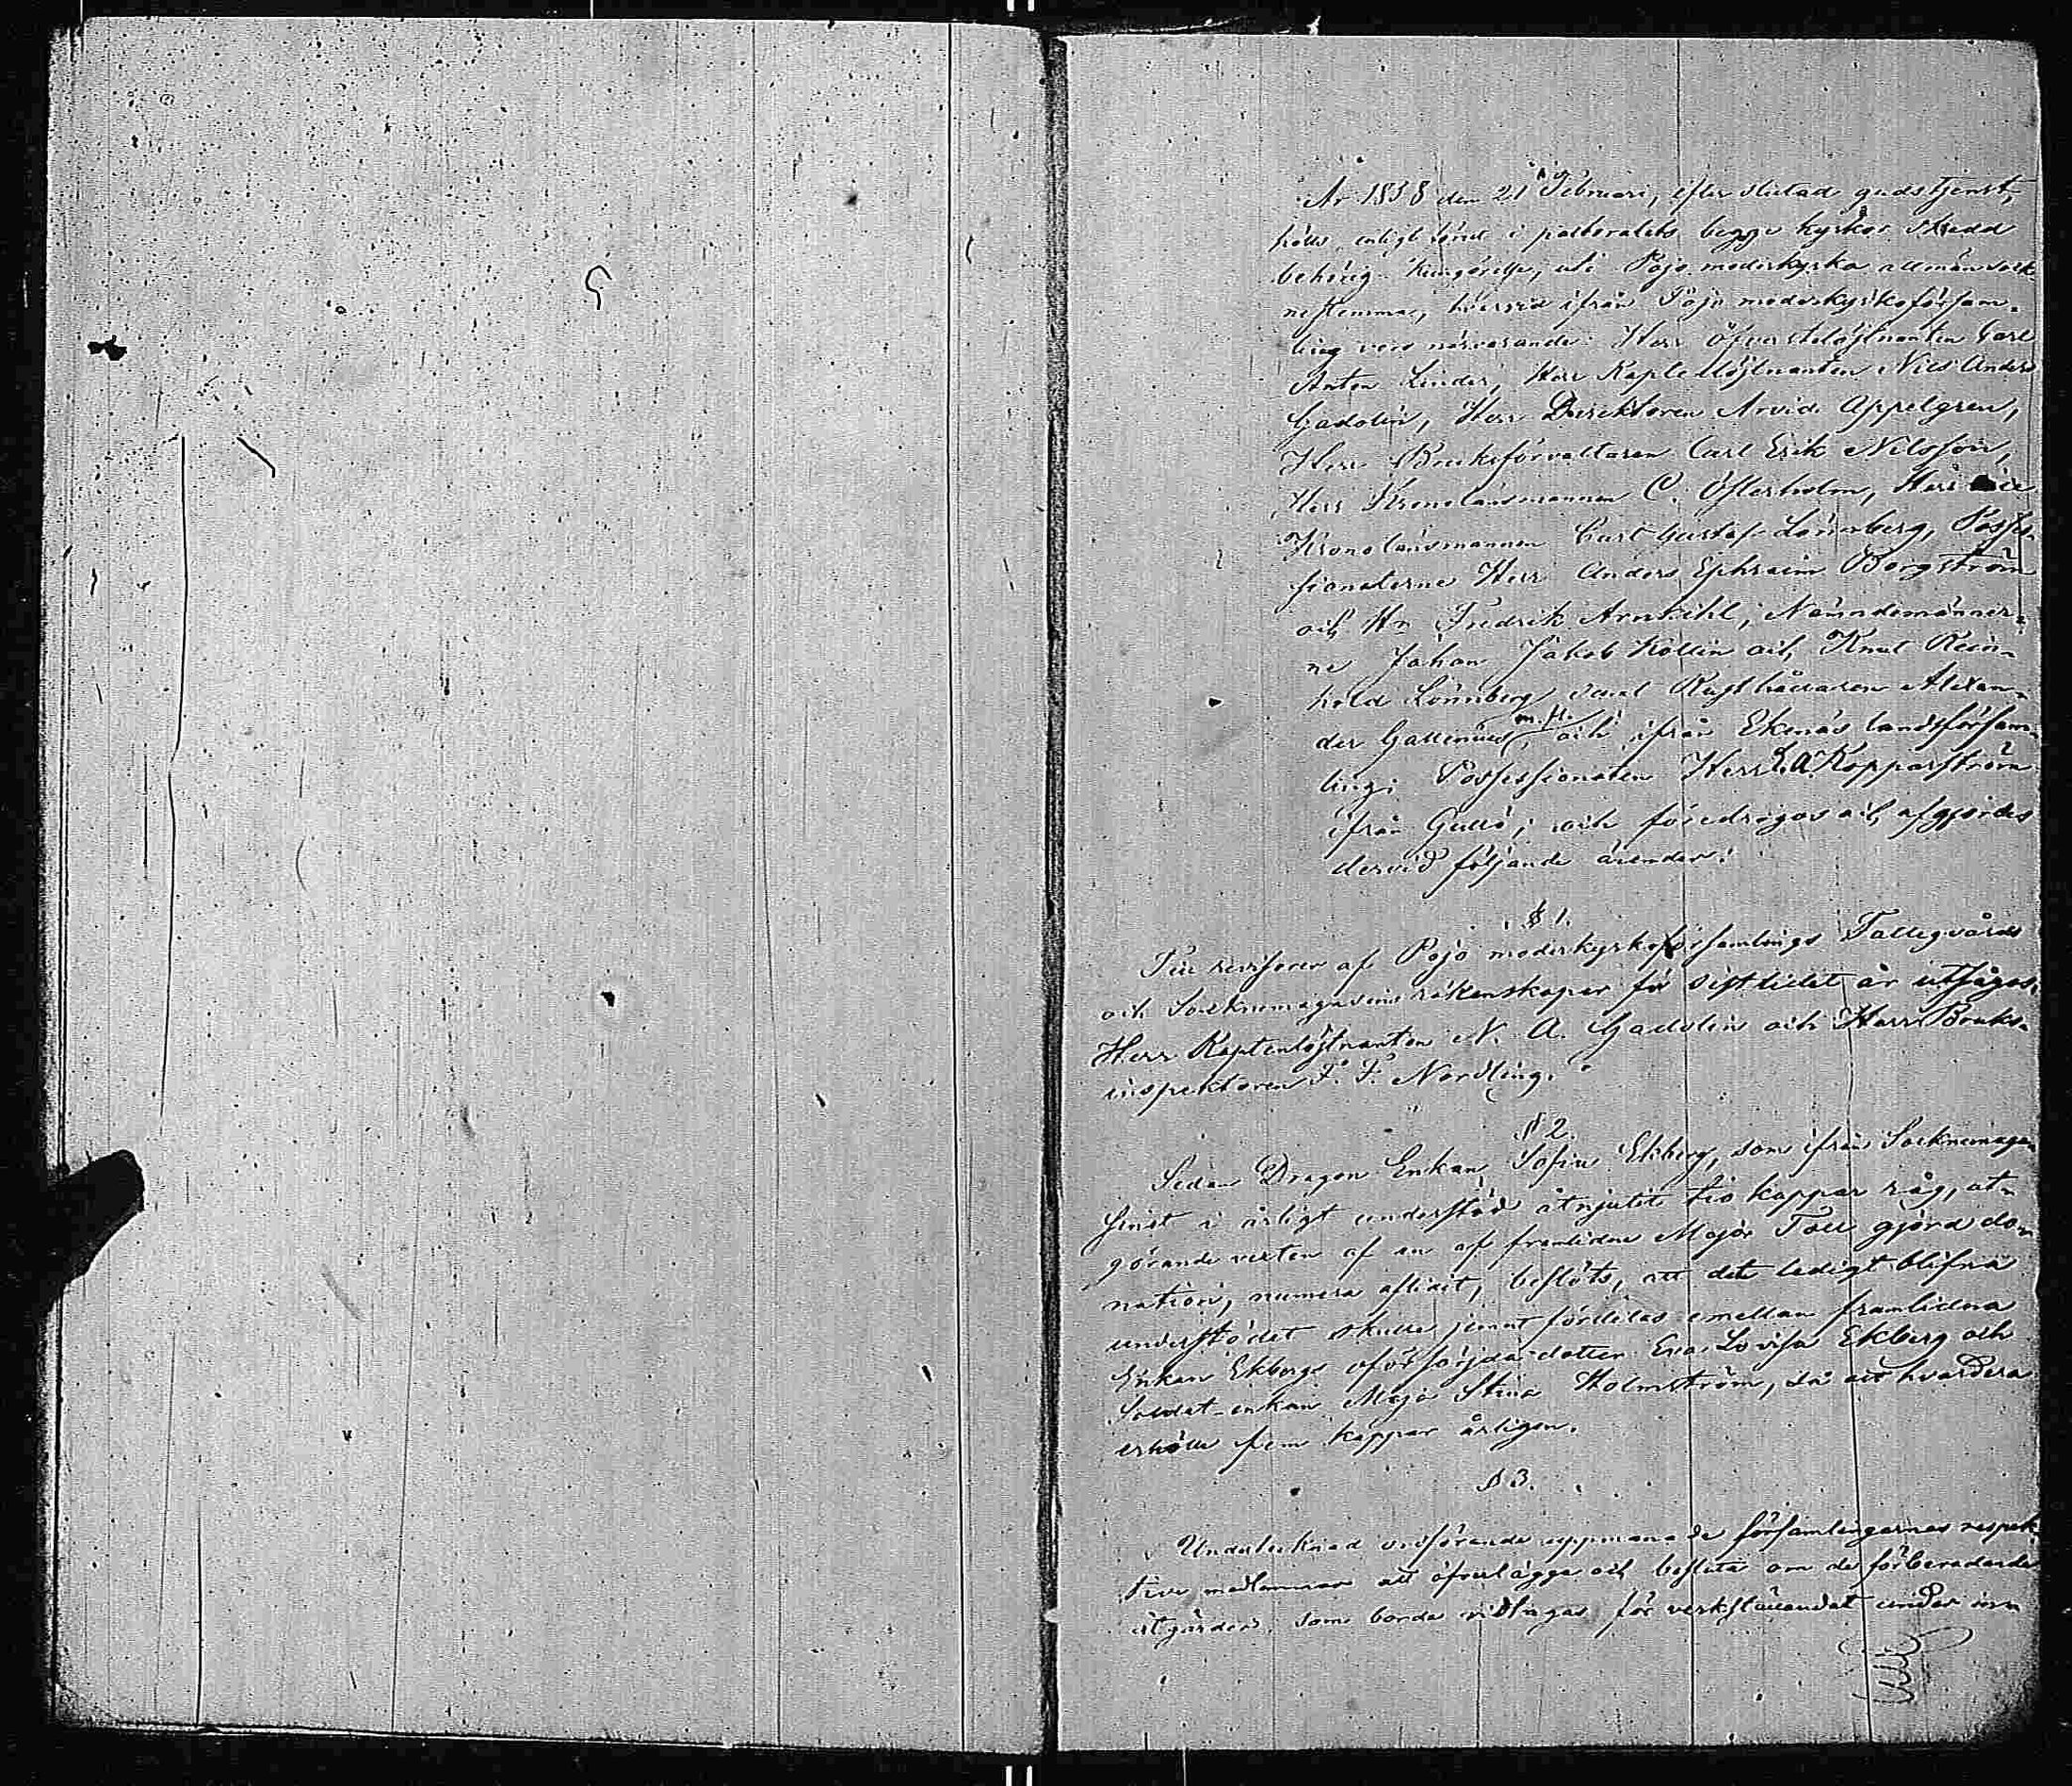 År 1858 den 21 Februari, efter slutad gudstjenst,
hölls, enligt förut i pastoratets begge kyrkor skedd
behörig kungörelse, uti Pojo moderkyrka allmän sock-
nestemma, hvarvid ifrån Pojo moderkyrkoförsam-
ling voro närvarande: Herr Öfverstelöjtnanten Carl
Anton Linder, Herr Kaptenlöjtnanten Nils Anders
Gadolin, Herr Direktoren Arvid Appelgren,
Herr Bruksförvaltaren Carl Erik Nilsson,
Herr Kronolänsmannen C. Österholm, Herr vice
Kronolänsmannen Curt Gustaf Lönnberg, Posses-
sionaterne Herr Anders Ephraim Borgström
och Hr Fredrik Arnkihl, Nämndemänner-
ne Johan Jakob Kollin och Knut Rein-
hold Lönnberg, samt Rusthållaren Alexan-
der Gallenius, m. fl. och ifrån Ekenäs landsförsam-
ling: Possessionaten Herr L. A. Kopparström
ifrån Gullö; och föredrogos och afgjordes
dervid följande ärender:
§ 1.
Till revisorer af Pojo moderkyrkoförsamlings Fattigvårds
och Socknemagasins räkenskaper för sistlidet år utsågos,
Herr Kaptenlöjtnanten N. A. Gadolin och Herr Bruks-
inspektoren F. F. Nordling.
§ 2.
Sedan Dragon Enkan Sofia Ekberg, som ifrån Socknemaga-
sinet i årligt understöd åtnjutit tio kappar råg, ut-
görande rexten af en af framlidne Major Toll gjord do-
nation, numera aflidit, beslöts, att det ledigt blifna
understödet skulle jemnt fördelas emellan framlidna
Enkan Ekbergs oförsörjda dotter Eva Lovisa Ekberg och
Soldat-enkan Maja Stina Holmström, så att hvardera
erhölle fem kappar årligen.
§ 3.
Undertecknad ordförande uppmanade församlingarnes respek-
tive medlemmar att öfverlägga och besluta om de förberedande
åtgärder, som borde vidtagas för verkställandet under inn-